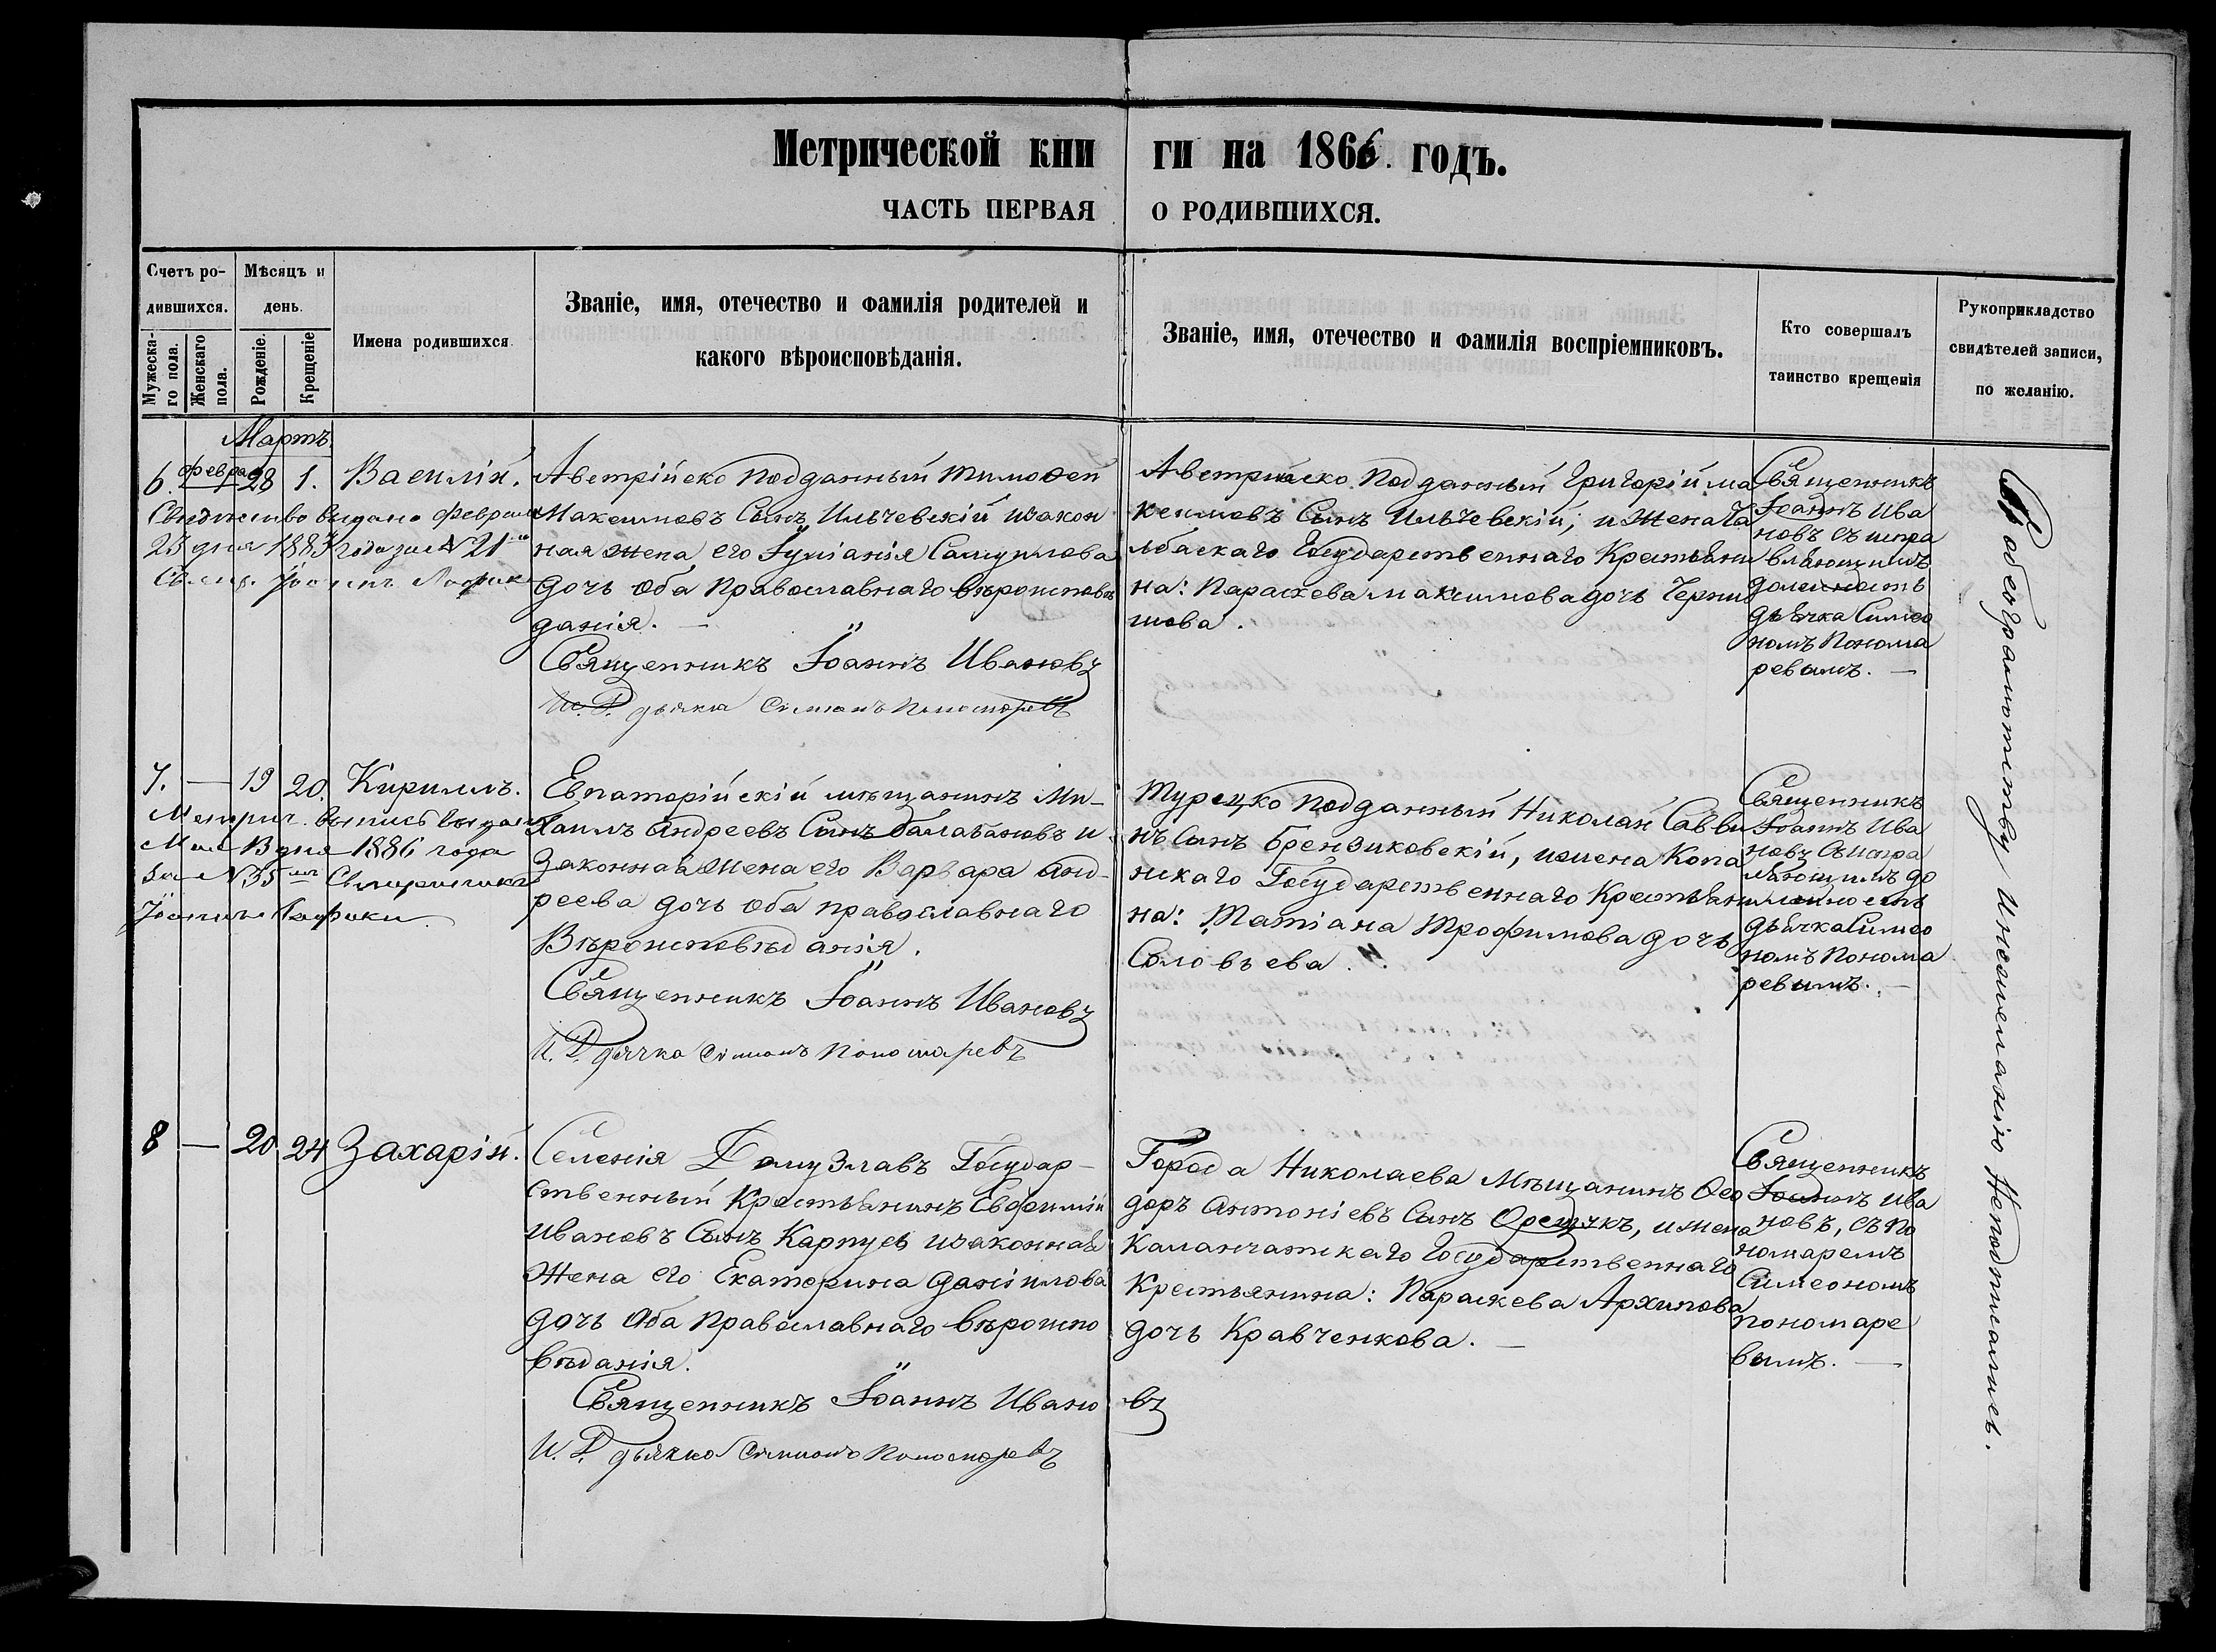 Метрической кни
ги на 1866. годъ.
ЧАСТЬ ПЕРВАЯ
О РОДИВШИХСЯ.
Счетъ ро-
дившихся.
Мужеска-
го пола.
Женскаго
пола.
Мѣсяцъ и
день.
Рожденіе.
Крещеніе
Имена родившихся
Званіе, имя, отечество и фамилія родителей и
какого вѣроисповѣданія.
Званіе, имя, отечество и фамилія воспріемниковъ.
Кто совершалъ
таинство крещенія
Рукоприкладство
свидѣтелей записи,
по желанію.
Мартъ.
6. февра 28 1. Василій.
23 дня 1883 года за № 21
Австрійско подданный Тимоѳей
Максимовъ Сынъ Ильчевскій изакон
ная жена его Іуліанія Самуилова
дочь оба Православнаго вѣроисповѣ
данія. —
Священникъ Іоаннъ Ивановъ
И. Д. дьячка Симеонъ Пономаревъ
Австрійско Подданный Григорій ма
ксимовъ Сынъ Ильчевскій; и Жена Ча
лбаскаго Государственнаго Крестьяни
на: Параскева максимова дочь Черни
шова.
Священникъ
Іоаннъ Ива
новъ съ испра
вляющимъ
должность
дьячка Симео
номъ Понома
ревымъ. —
7. — 19 20. Кириллъ.
Метрич. выпись выдана
Мая 13 дня 1886 года
за № 35
Евпаторійскій мѣщанинъ Ми-
хаилъ Андреевъ Сынъ Балабановъ и
законная Жена его Варвара Анд-
реева дочь оба православнаго
Вѣроисповѣданія.
Священникъ Іоаннъ Ивановъ
И. Д. дьячка Симеонъ Пономаревъ
Турецко подданный Николай Савви
нъ Сынъ Брензиковскій, ижена Копа
нскаго Государственнаго Крестьяни
на: Татіана Трофимова дочь
Соловьева.
Священникъ
Іоаннъ Ива
новъ Съ испра
вляющимъ до
лжность
дьячка Симео
номъ Понома
ревымъ. —
8 — 20 24 Захарій.
Селенія Домузлавъ Государ-
ственный Крестьянинъ Евфимій
Ивановъ Сынъ Карпуев изаконная
Жена его Екатерина Даніилова
дочь Оба Православнаго вѣроиспо
вѣданія.
Священникъ Іоаннъ Ивано
въ
И. Д. дьячка Симеонъ Пономаревъ
Города Николаева Мѣщанинъ Ѳео
доръ Антоніевъ Сынъ Орещукъ, ижена
Каланчатскаго Государственнаго
Крестьянина: Параскева Архипова
дочь Кравченкова. —
Священникъ
Іоаннъ Ива
новъ, съ по
номаремъ
Симеономъ
пономаре
вымъ. —
По безграмотству и нежеланію Неподписались.